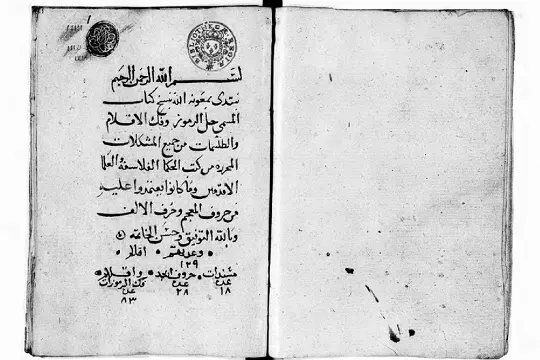 1
BIBLIOTHECÆ REGIÆ
بسم الله الرحمن الرحيم
نبتدى بمعونة الله بنسخ كتاب
المسمى حل الرموز وفك الاقلام
والطلسمات من جميع المشكلات
المحرره من كتب الحكما الفلاسفة العلما
الاقدمين وما كانوا يعتمدوا عليه
من حروف المعجم وحرف الالف
وبالله التوفيق وحسن الخاتمه
وعدتهم اقلام
١٢٩
حروف ابجد واقلام
عدة عدة فك المرموزات
١٨ ٢٨ عدة
٨٣